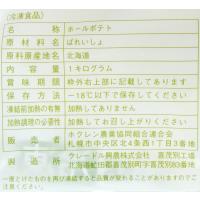 (冷凍食品)
名称 ホールポテト
原材料名 ばれいしょ
原料原産地名 北海道
内容量 1キログラム
賞味期限 枠外右上部に記載してあります
保存方法 −18℃以下で保存してください
凍結前加熱の有無 加熱してありません
加熱調理の必要性 加熱してください
販売者 ホクレン農業協同組合連合会
札幌市中央区北4条西1丁目3番地
製造所 クレードル興農株式会社 喜茂別工場
北海道虻田郡喜茂別町字喜茂別83番地
一度とけたものを再び凍結すると品質が変わることがありますので